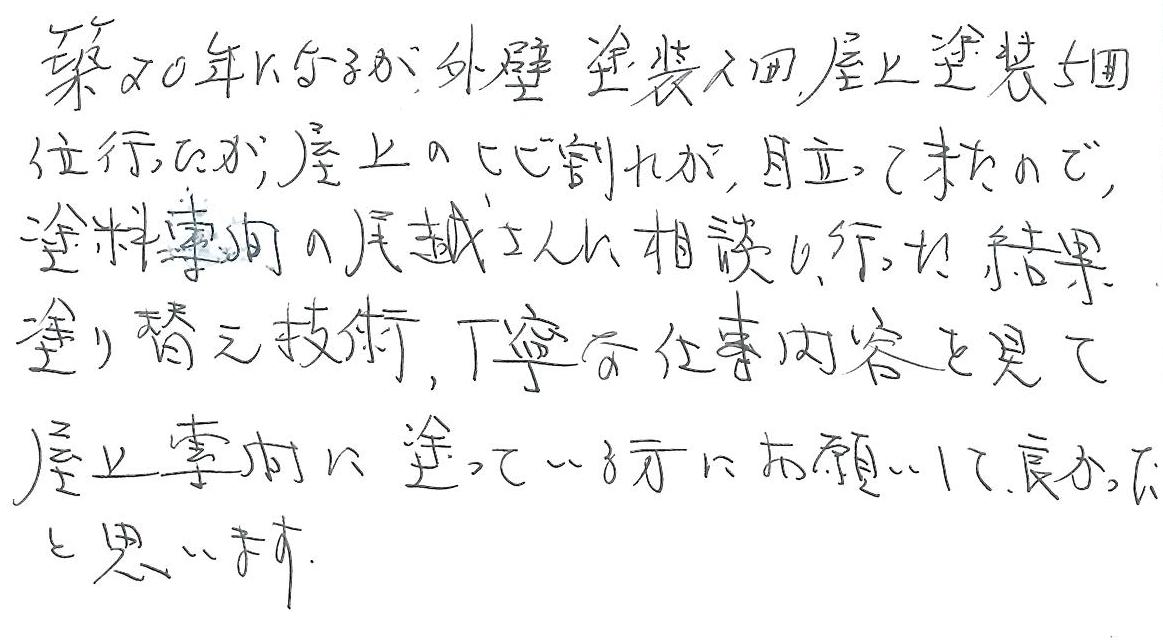 築20年になるが、外壁塗装2回、屋上塗装5回
位行ったが、屋上のヒビ割れが、目立って来たので、
塗料専門の尾越さんに相談し、行った結果
塗り替え技術、丁寧な仕事内容を見て
屋上専門に塗っている方にお願いして、良かった
と思います。